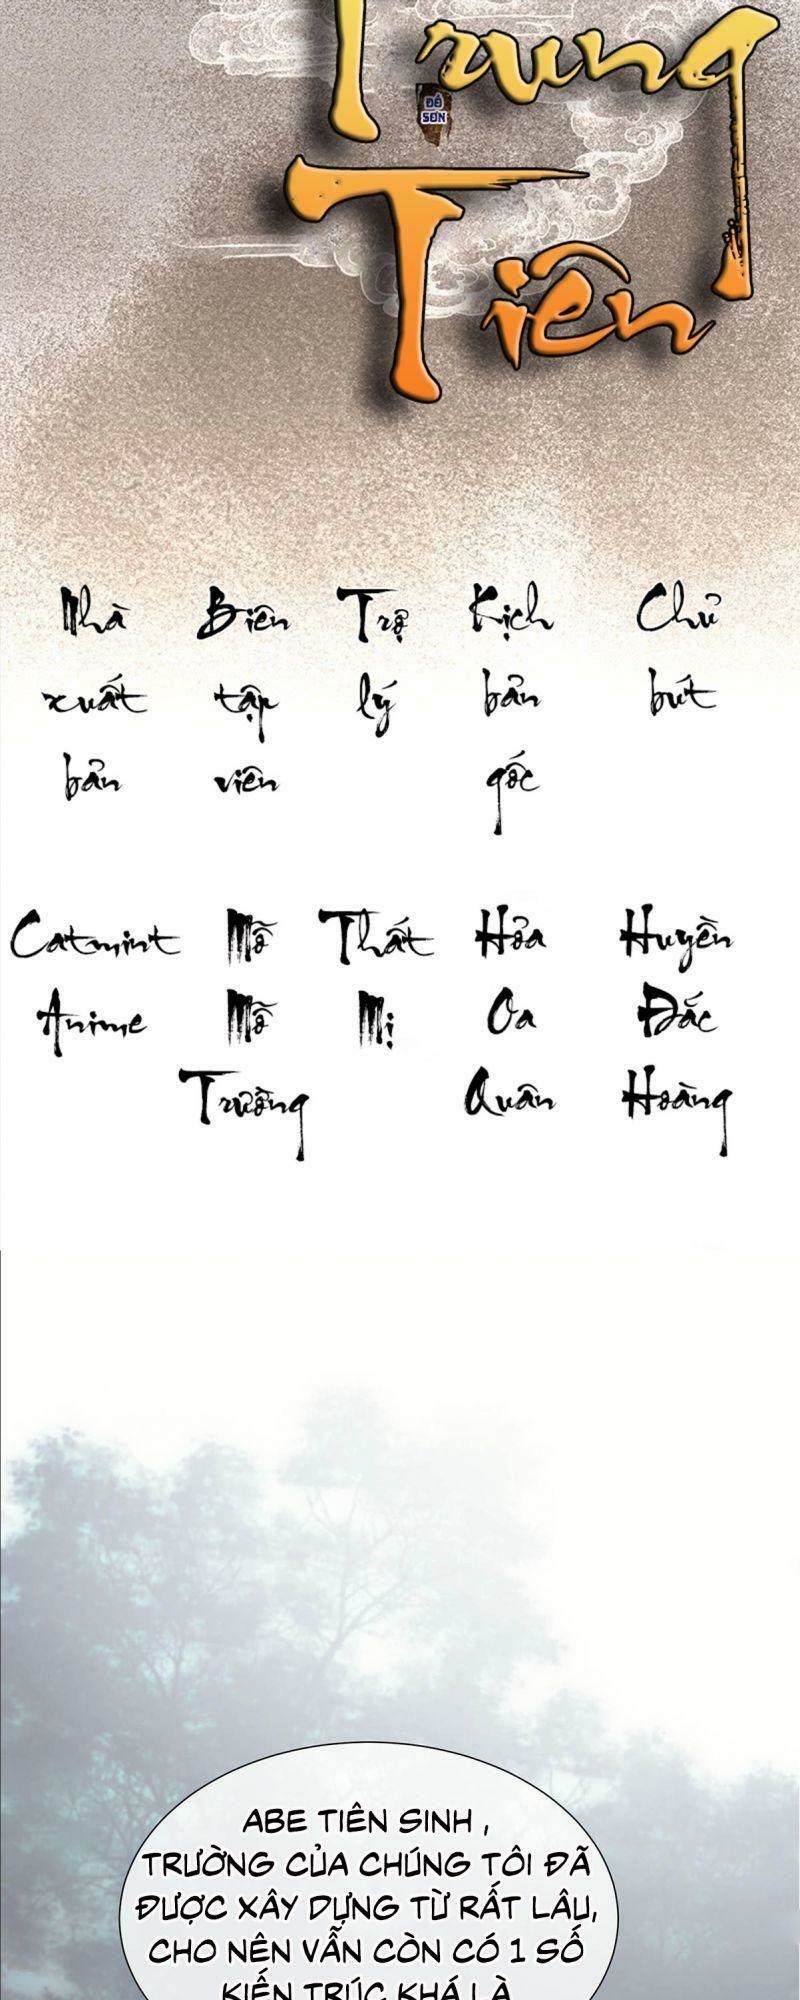 Trung
ĐỒ
SƠN
Tiên
Nhà Biên Trợ Kịch Chủ
xuất tập lý bản bút
bản viên gốc
Catmint Mỡ Thất Hỏa Huyền
Anime Mỡ Mị Oa Đắc
Trường Quân Hoàng
ABE TIÊN SINH ,
TRƯỜNG CỦA CHÚNG TÔI ĐÃ
ĐƯỢC XÂY DỰNG TỪ RẤT LÂU,
CHO NÊN VẪN CÒN CÓ 1 SỐ
KIẾN TRÚC KHÁ LÀ